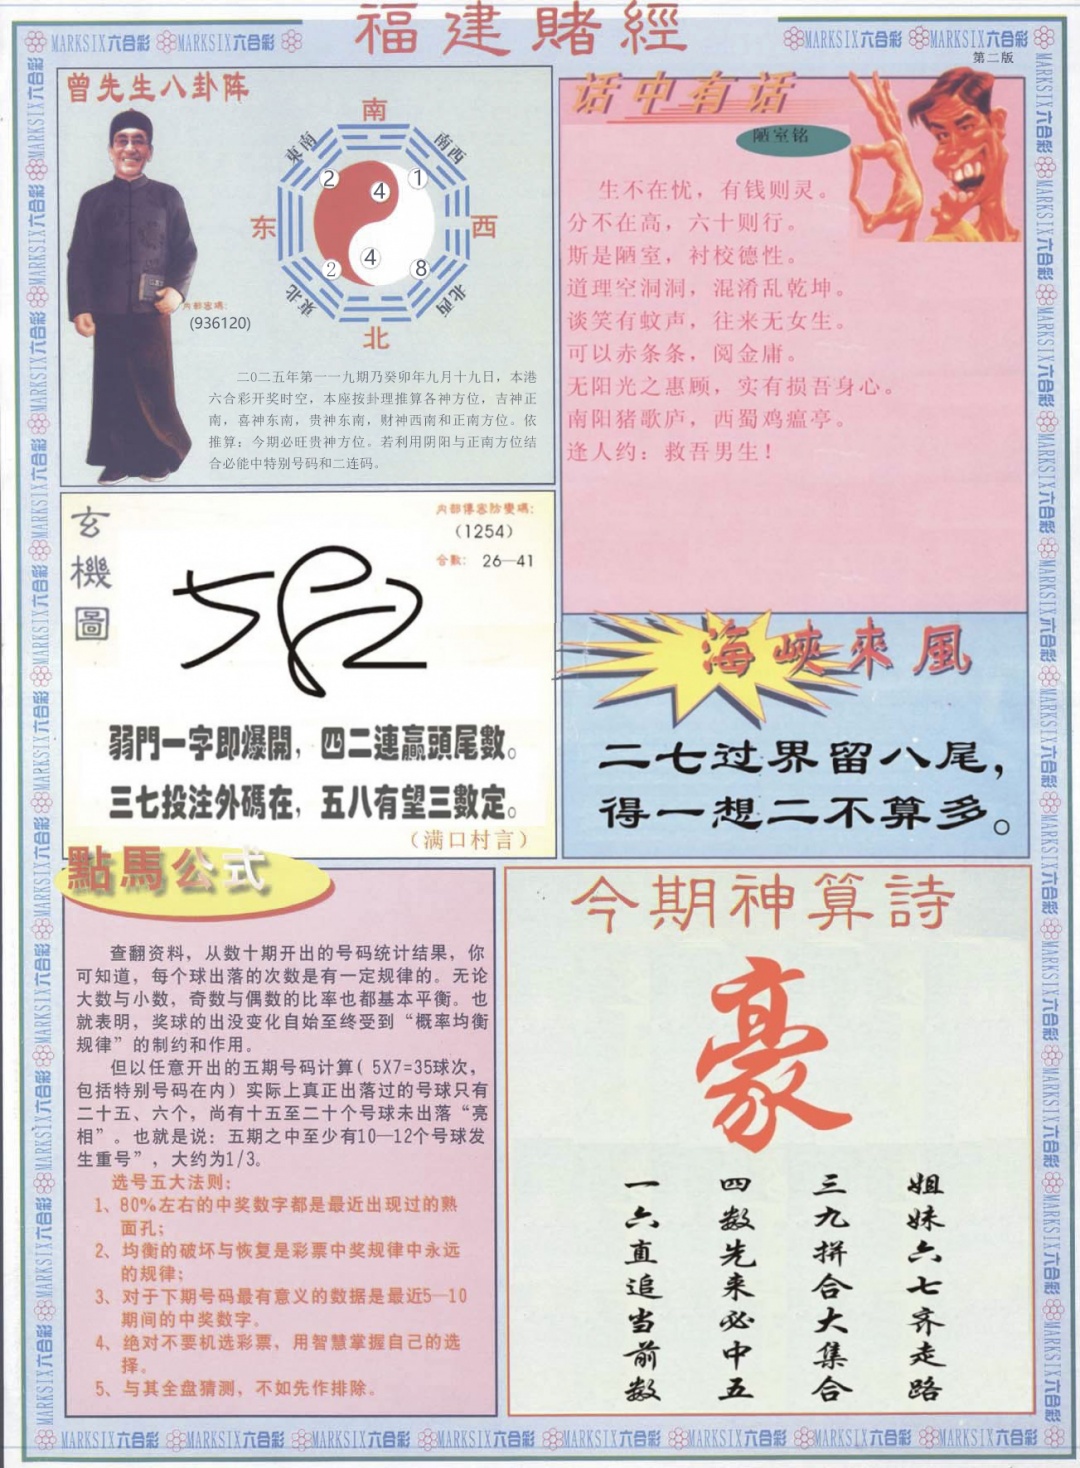 福建賭經
MARKSIX六合彩 MARKSIX六合彩 MARKSIX六合彩 MARKSIX六合彩
第二版
曾先生八卦阵
南
東南
南西
2
4
1
东
西
4
2
8
東北
北西
北
内部密碼:
(936120)
二0二五年第一一九期乃癸卯年九月十九日，本港
六合彩开奖时空，本座按卦理推算各神方位，吉神正
南，喜神东南，贵神东南，财神西南和正南方位。依
推算：今期必旺贵神方位。若利用阴阳与正南方位结
合必能中特别号码和二连码。
话中有话
陋室铭
生不在忧，有钱则灵。
分不在高，六十则行。
斯是陋室，衬校德性。
道理空洞洞，混淆乱乾坤。
谈笑有蚊声，往来无女生。
可以赤条条，阅金庸。
无阳光之惠顾，实有损吾身心。
南阳猪歌庐，西蜀鸡瘟亭。
逢人约：救吾男生！
玄機圖
内部傳密防變碼:
(1254)
合數: 26—41
弱門一字即爆開，四二連贏頭尾數。
三七投注外碼在，五八有望三數定。
（满口村言）
海峽來風
二七过界留八尾，
得一想二不算多。
點馬公式
查翻资料，从数十期开出的号码统计结果，你
可知道，每个球出落的次数是有一定规律的。无论
大数与小数，奇数与偶数的比率也都基本平衡。也
就表明，奖球的出没变化自始至终受到“概率均衡
规律”的制约和作用。
但以任意开出的五期号码计算( 5X7=35球次，
包括特别号码在内) 实际上真正出落过的号球只有
二十五、六个，尚有十五至二十个号球未出落“亮
相”。也就是说：五期之中至少有10—12个号球发
生重号”，大约为1/3。
选号五大法则:
1、80%左右的中奖数字都是最近出现过的熟
面孔；
2、均衡的破坏与恢复是彩票中奖规律中永远
的规律；
3、对于下期号码最有意义的数据是最近5—10
期间的中奖数字。
4、绝对不要机选彩票，用智慧掌握自己的选
择。
5、与其全盘猜测，不如先作排除。
今期神算詩
豪
姐妹六七齐走路
三九拼合大集合
四数先来必中五
一六直追当前数
MARKSIX六合彩 MARKSIX六合彩 MARKSIX六合彩 MARKSIX六合彩 MARKSIX六合彩 MARKSIX六合彩 MARKSIX六合彩 MARKSIX六合彩